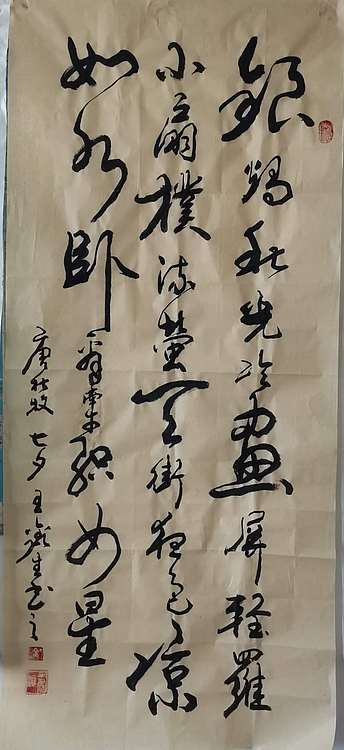 銀燭秋光冷畫屏輕羅
小扇撲流螢天街夜色涼
如水卧看牽牛織女星
唐杜牧七夕王生书之